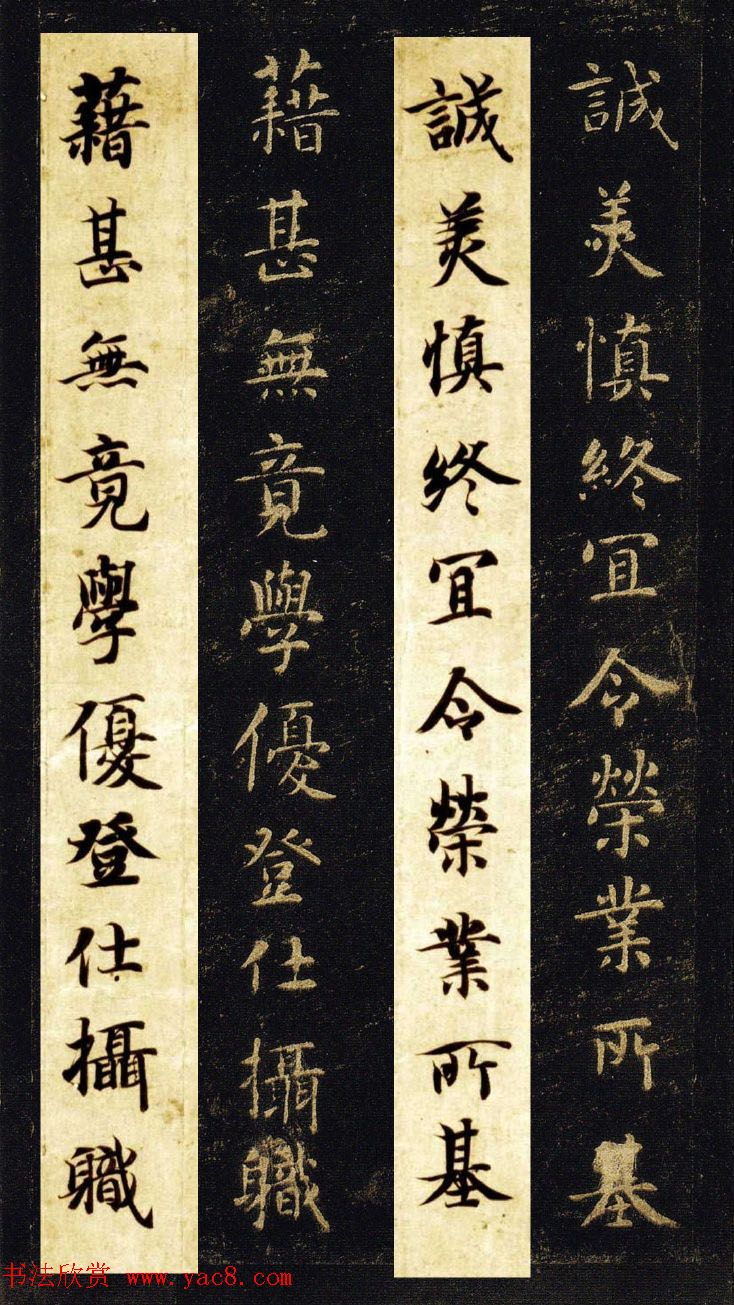 誠美慎終宜令榮業所基
誠美慎終宜令榮業所基
藉甚無竟學優登仕攝職
藉甚無竟學優登仕攝職
书法欣赏 www.yac8.com